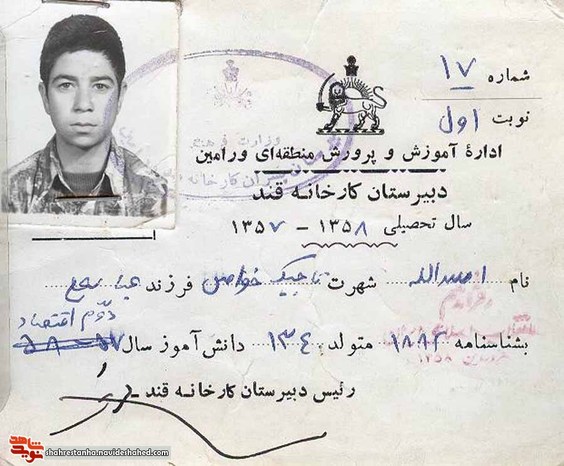 شماره ۱۷
نوبت اول
ادارهٔ آموزش و پرورش منطقه‌ای ورامین
دبیرستان کارخانه قند
سال تحصیلی ۱۳۵۸ - ۱۳۵۷
نام اسدالله شهرت تاجیک خواص فرزند
دوّم اقتصاد
بشناسنامه ۱۸۸۲ متولد ۱۳۴۰ دانش‌آموز سال
رئیس دبیرستان کارخانه قند
نوید شاهد
shahrestanha.navideshahed.com